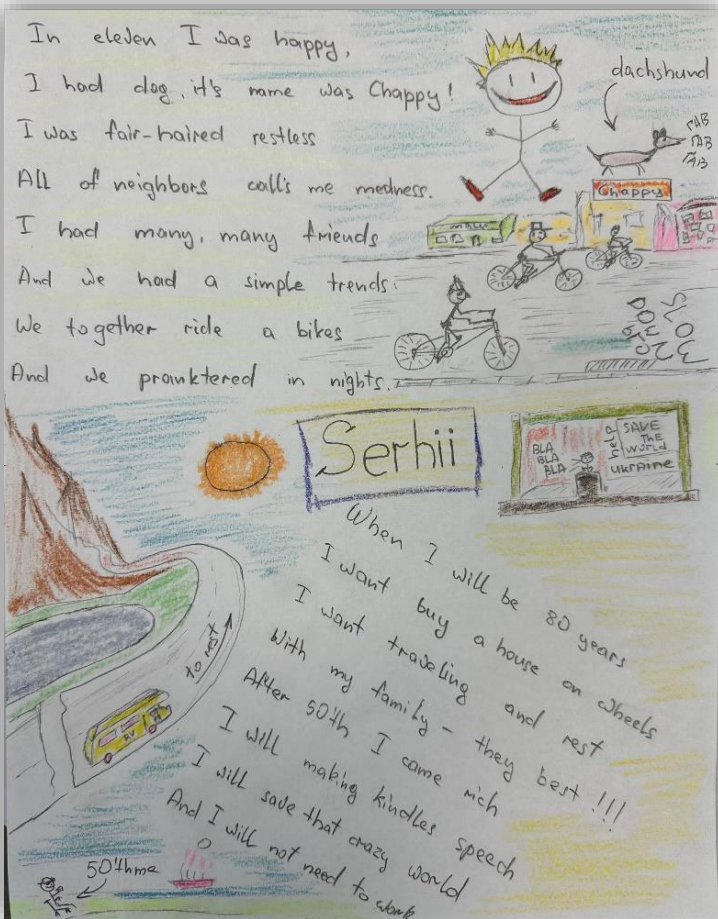 In eleven I was happy,
I had dog, it's name was Chappy!
I was fair-haired restless
All of neighbors call's me medness.
I had many, many friends
And we had a simple trends:
We together ride a bikes
And we pranktered in nights.
dachshund
ГАВ
ГАВ
ГАВ
Chappy
SLOW
DOWN
Serhii
BLA
BLA
BLA
help
SAVE
THE
World
Ukraine
When I will be 80 years
I want buy a house on wheels
I want traveling and rest
With my family - they best !!!
After 50'th I came rich
I will making kindles speech
I will save that crazy world
And I will not need to work
to rest
RV
50'thme